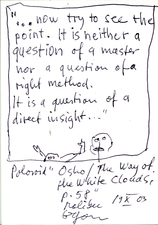 "...now try to see the
point. It is neither a
question of a master
nor a question of a
right method.
It is a question of a
direct insight..."
Poloroid" Osho/The Way of
the White Clouds,
p. 58"
19 X 03